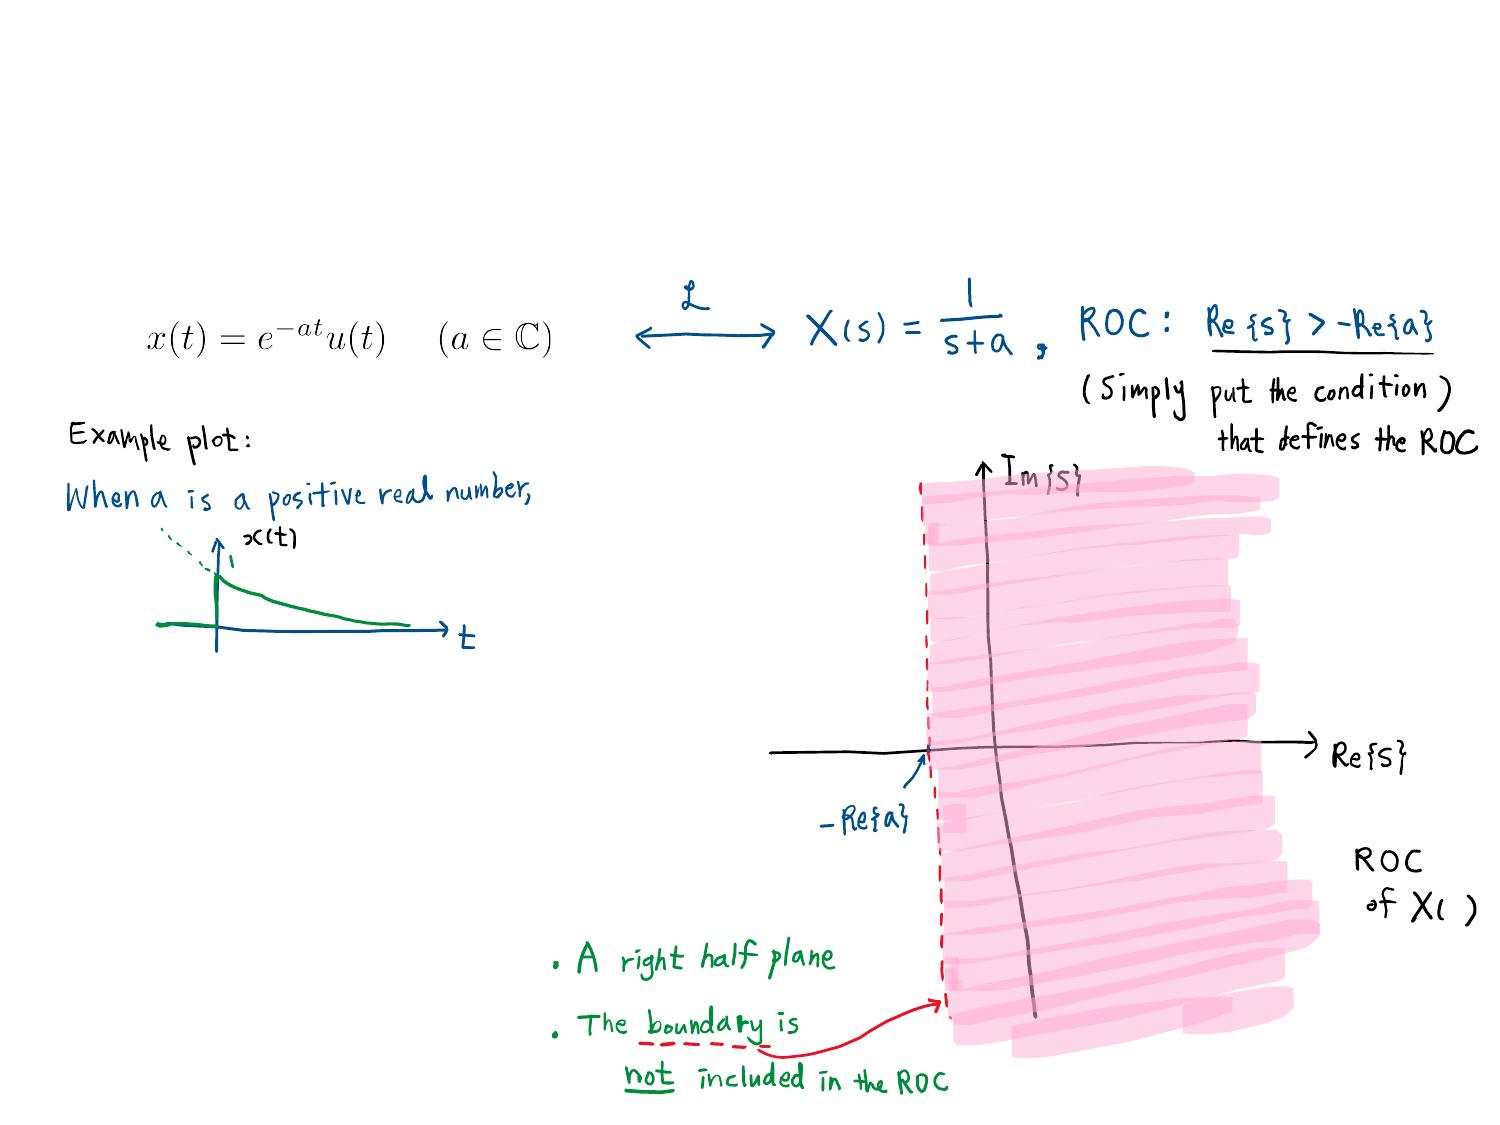 x(t) = e^{-at}u(t) (a ∈ ℂ) ℒ ⟷ X(s) = 1/(s+a), ROC: Re{s} > -Re{a}
(Simply put the condition)
that defines the ROC
Example plot:
When a is a positive real number,
x(t)
1
t
Im{s}
Re{s}
-Re{a}
ROC
of X( )
• A right half plane
• The boundary is
not included in the ROC